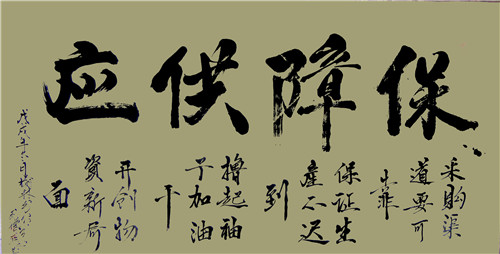 保障供应
采购渠
道要可
靠
保证生
產不迟
到
撸起袖
子加油
干
开创物
資新局
面